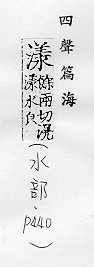 四聲篇海
漾餘兩切滉
漾水皃
(水部.p440)